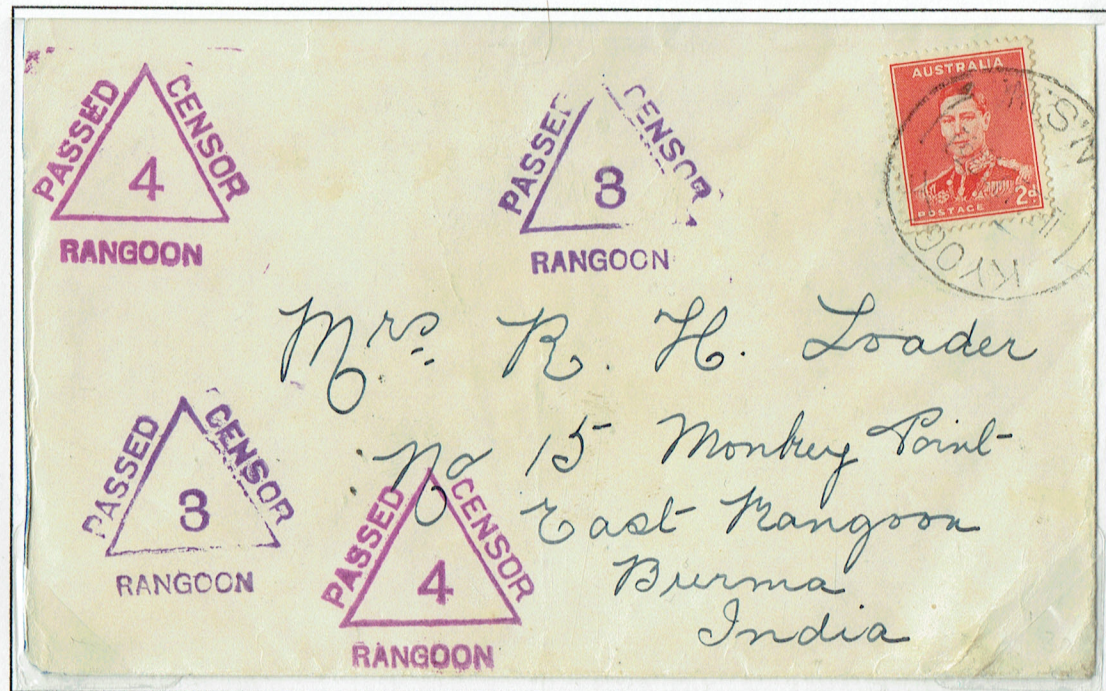 PASSED CENSOR
4
RANGOON
PASSED CENSOR
3
RANGOON
AUSTRALIA
2d
POSTAGE
N.S.W
Mrs. R. H. Loader
No 15 Monkey Point
East Rangoon
Burma
India
PASSED CENSOR
3
RANGOON
PASSED CENSOR
4
RANGOON